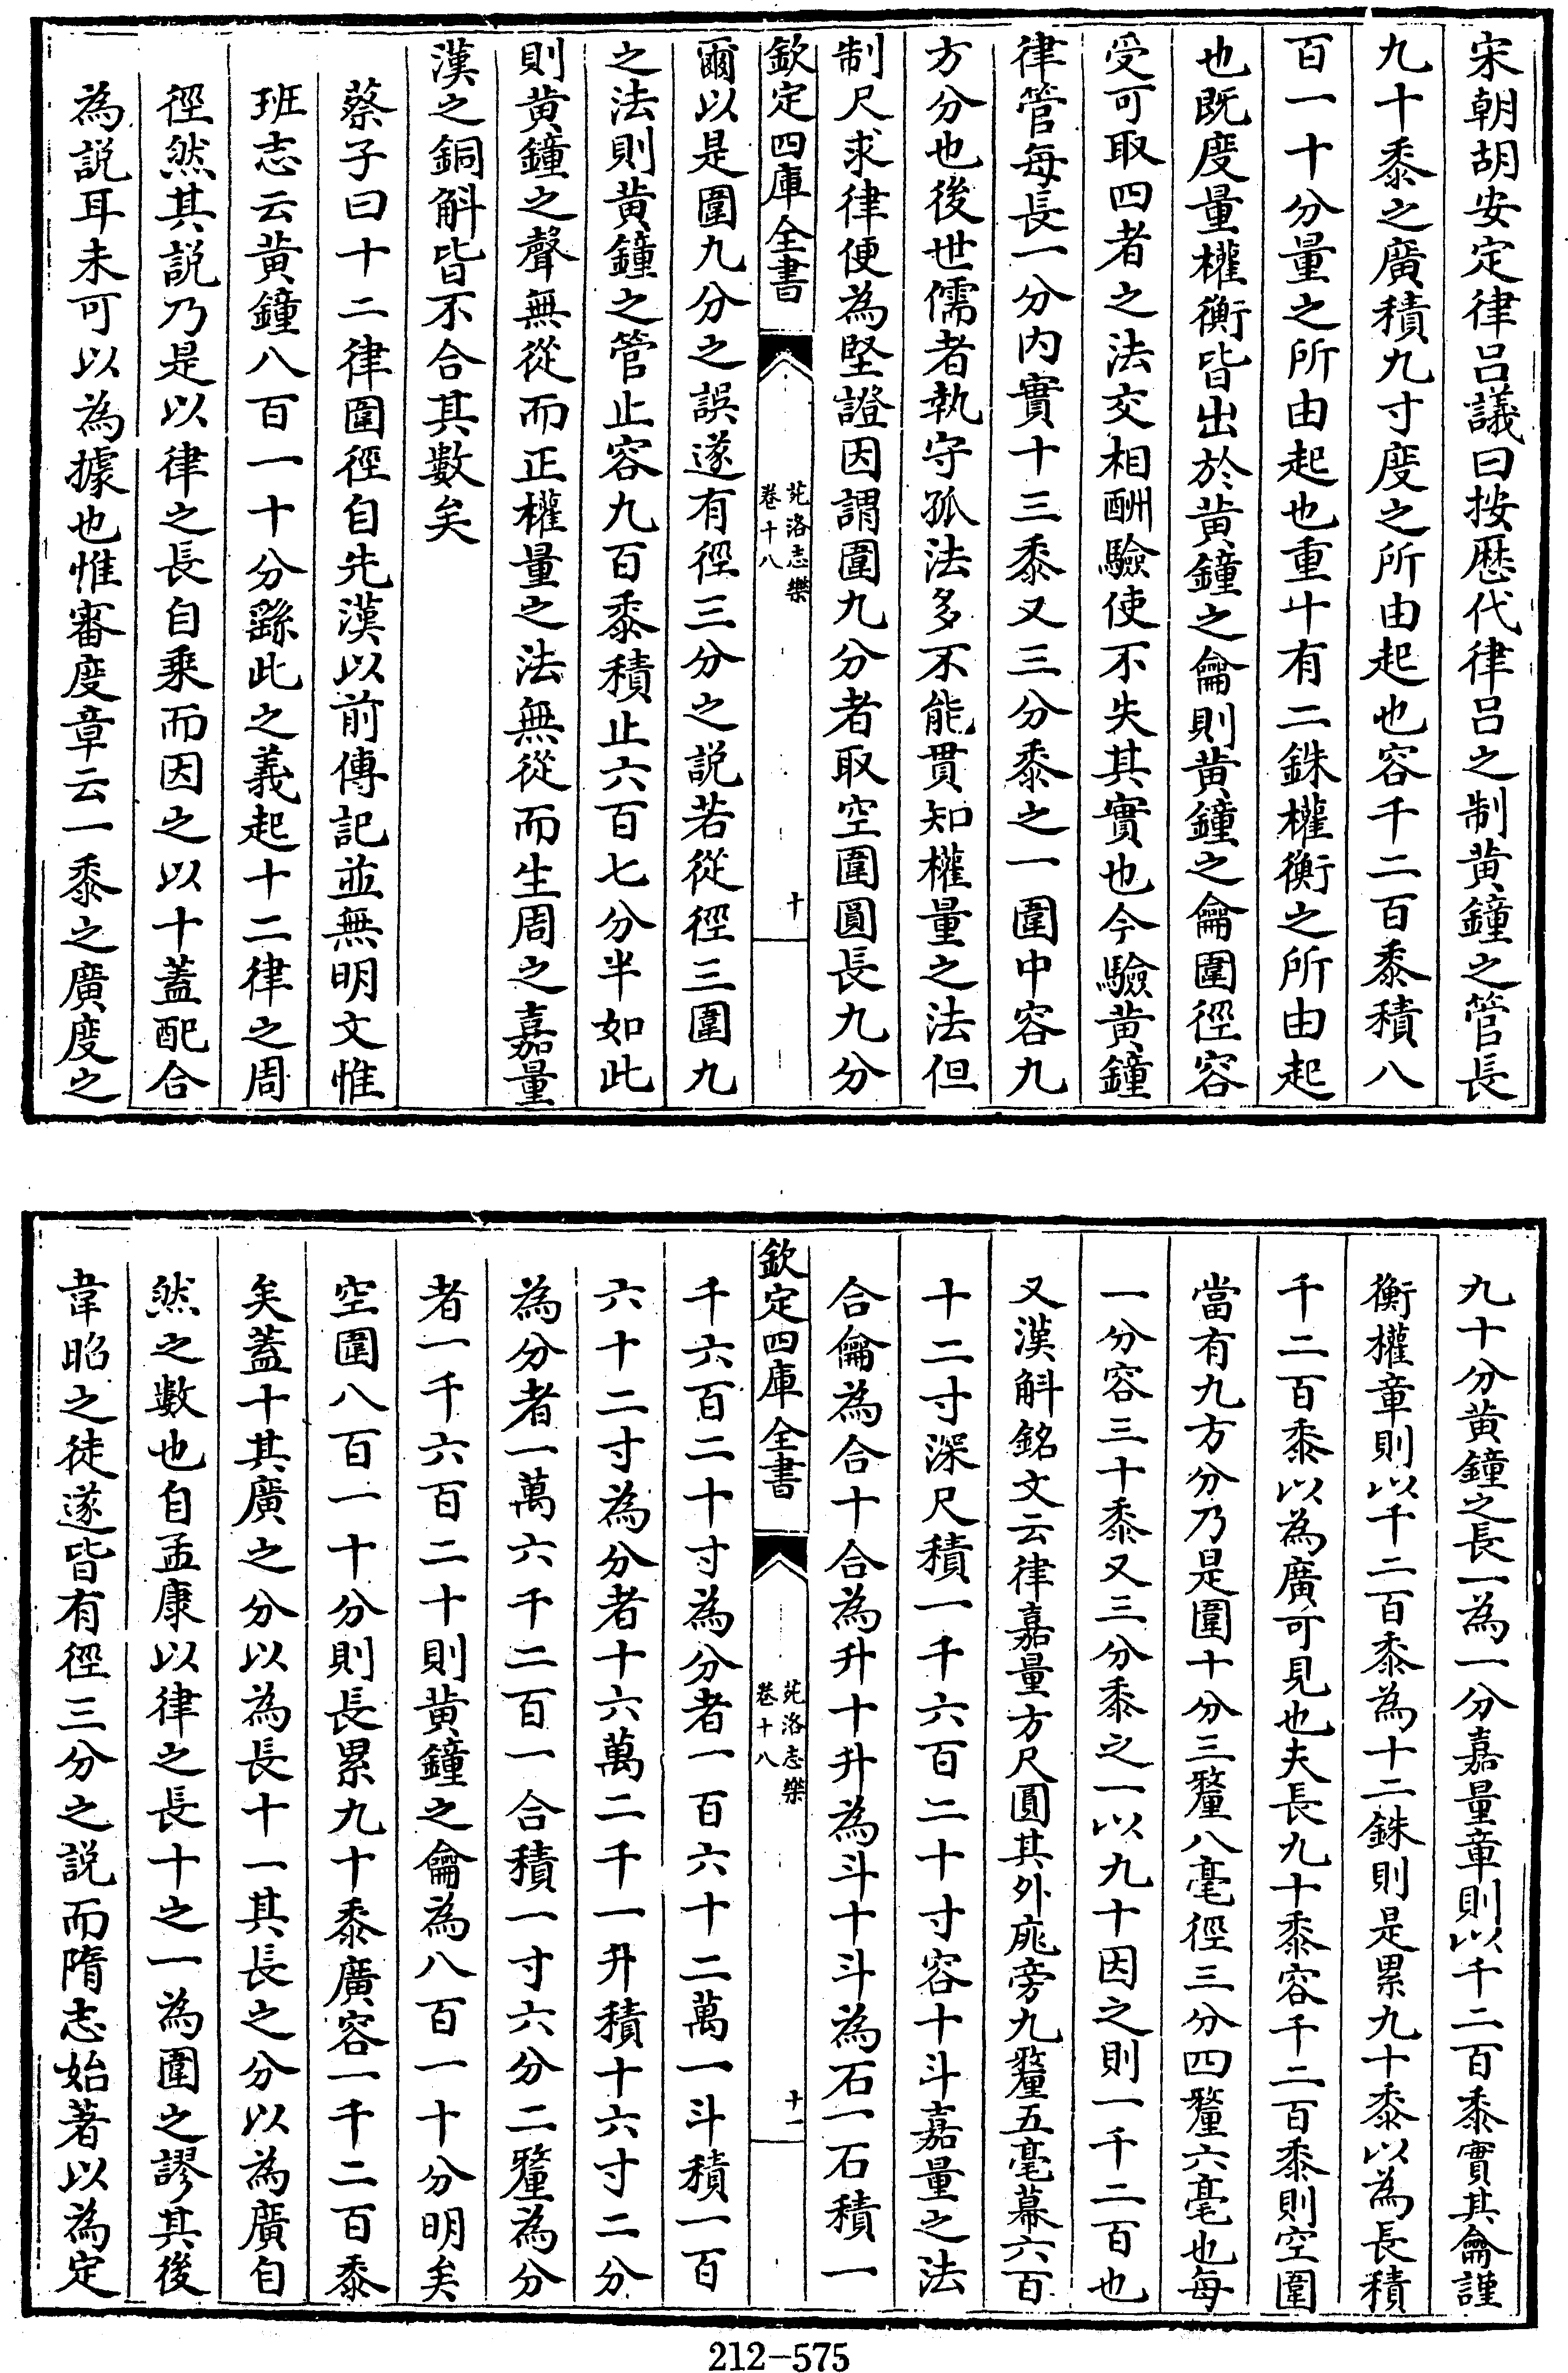 宋朝胡安定律呂議曰按歴代律呂之制黄鐘之管長
九十黍之廣積九寸度之所由起也容千二百黍積八
百一十分量之所由起也重十有二銖權衡之所由起
也既度量權衡皆出於黄鐘之龠則黄鐘之龠圍徑容
受可取四者之法交相酬驗使不失其實也今驗黄鐘
律管每長一分内實十三黍又三分黍之一圍中容九
方分也後世儒者執守孤法多不能貫知權量之法但
制尺求律便為堅證因謂圍九分者取空圍圓長九分
欽定四庫全書
苑洛志樂
卷十八
十
爾以是圍九分之誤遂有徑三分之説若從徑三圍九
之法則黄鐘之管止容九百黍積止六百七分半如此
則黄鐘之聲無從而正權量之法無從而生周之嘉量
漢之銅斛皆不合其數矣
蔡子曰十二律圍徑自先漢以前傳記並無明文惟
班志云黄鐘八百一十分繇此之義起十二律之周
徑然其説乃是以律之長自乘而因之以十蓋配合
為説耳未可以為據也惟審度章云一黍之廣度之
九十分黄鐘之長一為一分嘉量章則以千二百黍實其龠謹
衡權章則以千二百黍為十二銖則是累九十黍以為長積
千二百黍以為廣可見也夫長九十黍容千二百黍則空圍
當有九方分乃是圍十分三釐八毫徑三分四釐六毫也每
一分容三十黍又三分黍之一以九十因之則一千二百也
又漢斛銘文云律嘉量方尺圓其外庣旁九釐五毫冪六百
十二寸深尺積一千六百二十寸容十斗嘉量之法
合龠為合十合為升十升為斗十斗為石一石積一
欽定四庫全書
苑洛志樂
卷十八
十一
千六百二十寸為分者一百六十二萬一斗積一百
六十二寸為分者十六萬二千一升積十六寸二分
為分者一萬六千二百一合積一寸六分二釐為分
者一千六百二十則黄鐘之龠為八百一十分明矣
空圍八百一十分則長累九十黍廣容一千二百黍
矣蓋十其廣之分以為長十一其長之分以為廣自
然之數也自孟康以律之長十之一為圍之謬其後
韋昭之徒遂皆有徑三分之説而隋志始著以為定
212-575